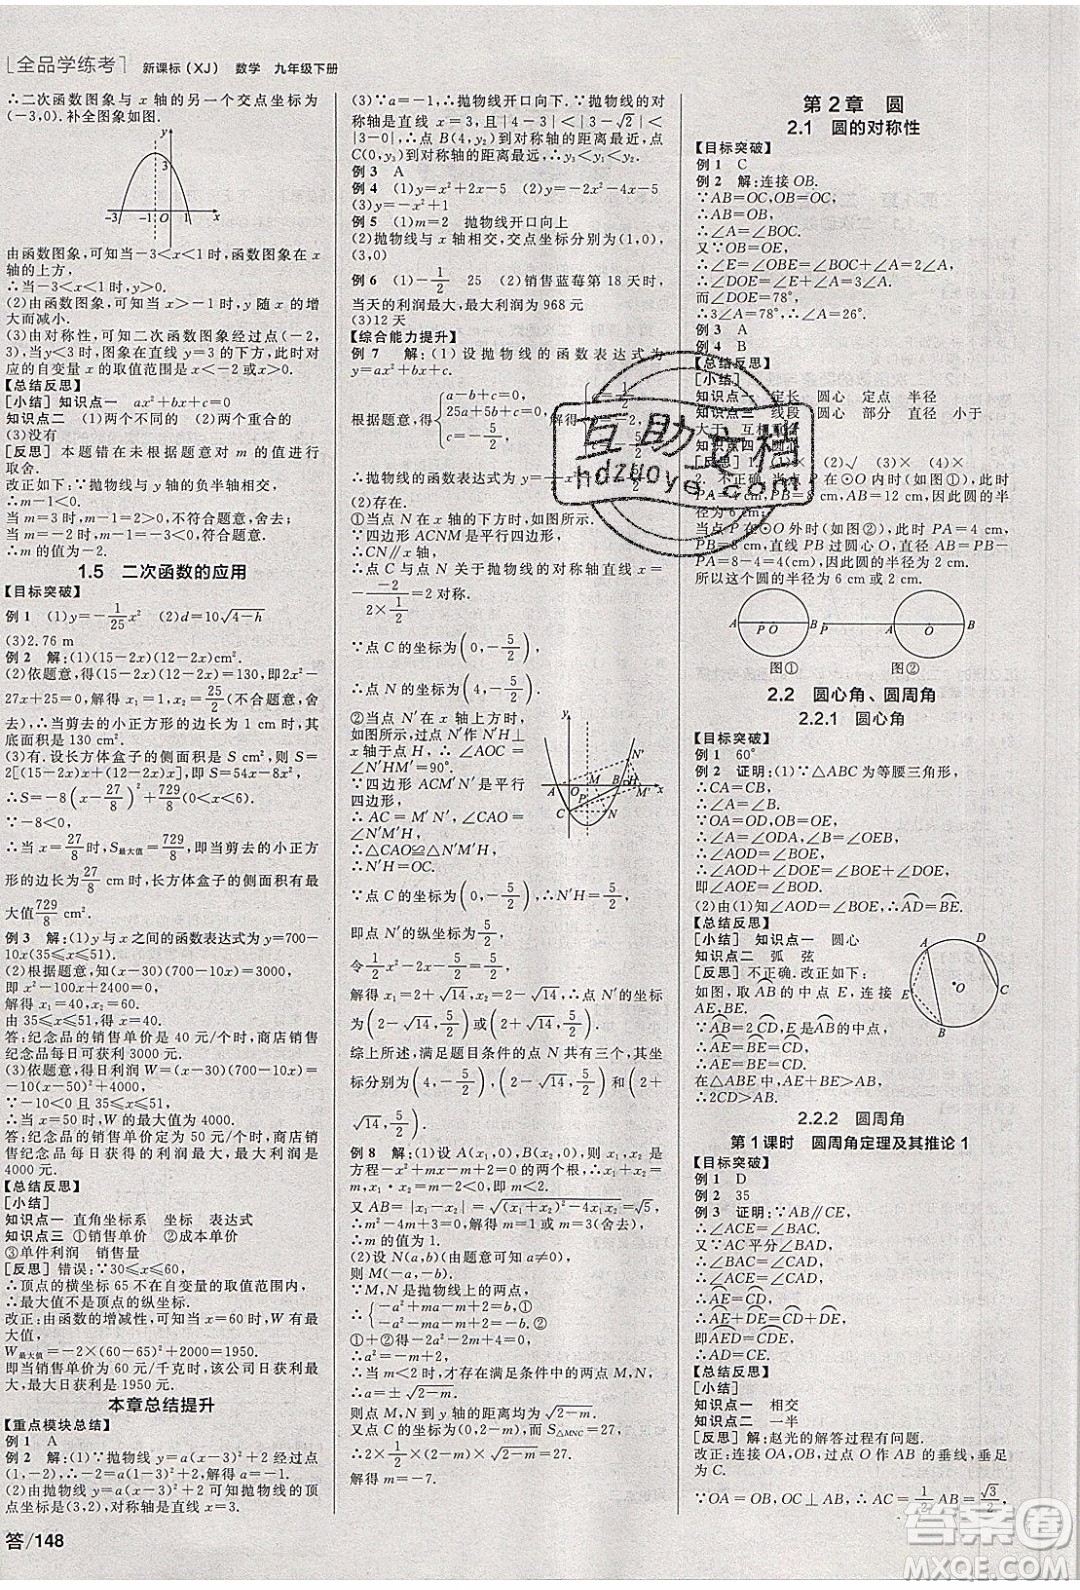 全品学练考 新课标（XJ） 数学 九年级下册
∴二次函数图象与 x 轴的另一个交点坐标为
(－3,0). 补全图象如图.
3
－3 －1 O 1 x
由函数图象,可知当－3＜x＜1 时,函数图象在 x
轴的上方,
∴当－3＜x＜1 时,y＞0.
(2)由函数图象,可知当 x＞－1 时,y 随 x 的增
大而减小.
(3)由对称性,可知二次函数图象经过点(－2,
3),∴当 y＜3 时,图象在直线 y＝3 的下方,此时对
应的自变量 x 的取值范围是 x＜－2 或 x＞0.
【总结反思】
[小结] 知识点一 ax²＋bx＋c＝0
知识点二 (1)两个不同的 (2)两个重合的
(3)没有
[反思] 本题错在未根据题意对 m 的值进行
取舍.
改正如下:∵交点为 x 轴的负半轴相交,
∴m－1＜0.
当 m＝3 时,m－1＝2＞0,不符合题意,舍去;
当 m＝－2 时,m－1＝－3＜0,符合题意.
∴m 的值为－2.
1.5 二次函数的应用
【目标突破】
例 1 (1)y＝－1/25 x² (2)d＝10√(4－h)
(3)2.76 m
例 2 解:(1)(15－2x)(12－2x)cm².
(2)依题意,得(15－2x)(12－2x)＝130,即 2x²－
27x＋25＝0,解得 x₁＝1,x₂＝25/2(不合题意,舍
去),∴当剪去的小正方形的边长为 1 cm 时,其
底面积是 130 cm².
(3)有. 设长方体盒子的侧面积是 S cm²,则 S＝
2[(15－2x)x＋(12－2x)x],即 S＝54x－8x²,
∴S＝－8(x－27/8)²＋729/8(0＜x＜6).
∵－8＜0,
∴当 x＝27/8时,S最大值＝729/8,即当剪去的小正方
形的边长为27/8 cm 时,长方体盒子的侧面积有最
大值729/8 cm².
例 3 解:(1)y 与 x 之间的函数表达式为 y＝700－
10x(35≤x≤51).
(2)根据题意,得(x－30)(700－10x)＝3000,
即 x²－100x＋2400＝0,
解得 x₁＝60(舍去),x₂＝40,
由 35≤x≤51,得 x＝40.
答:纪念品的销售单价是 40 元/个时,商店销售
纪念品每日可获利 3000 元.
(3)依题意,得日利润 W＝(x－30)(700－10x)＝
－10(x－50)²＋4000.
∵35≤x≤51,
∴当 x＝50 时,W 的最大值为 4000.
答:纪念品的销售单价定为 50 元/个时,商店销售
纪念品每日可获得最大利润,此时最大利润为
4000 元.
【总结反思】
[小结]
知识点一 直角坐标系 坐标 表达式
知识点三 ①销售单价 ②成本单价
③单件利润 销售量
[反思] 错误:∵依题意,得 60≤x≤87,
∴顶点的横坐标 65 不在自变量的取值范围之内,
∴最大值不是顶点的纵坐标.
改正:由函数的增减性,可知当 x＝60 时,W 有
最大值,
W最大值＝－2×(60－65)²＋2000＝1950.
即当销售单价为 60 元/千克时,该公司日获利最
大,最大日获利是 1950 元.
本章总结提升
【重点模块总结】
例 1 A
例 2 解:(1)∵抛物线 y＝a(x－3)²＋2 经过点
(1,－2),∴－2＝a(1－3)²＋2,解得 a＝－1.
(2)由抛物线 y＝a(x－3)²＋2,可知抛物线的顶
点坐标是(3,2),对称轴是直线 x＝3.
答/148
(3)∵a＝－1,∴抛物线开口向下. ∵抛物线的对
称轴是直线 x＝3,且|4－3|＜|3－√2|＜
|3－0|,∴点 A(m,y₁)到对称轴的距离最近,点
C(0,y₃)到对称轴的距离最远,∴y₃＜y₂＜y₁.
例 3 A
例 4 (1)y＝x²＋2x (2)y＝x²－2x
(3)y＝－x²＋1
例 5 (1)m＝2 抛物线开口向上
(2)抛物线与 x 轴相交,交点坐标分别为(1,0),
(3,0)
例 6 (1)－1/2 25 (2)销售蓝莓第 18 天时,
当天的利润最大,最大利润为 968 元
(3)12 天
【综合能力提升】
例 7 解:(1)设抛物线的函数表达式为
y＝ax²＋bx＋c.
(2)存在.
①当点 N 在 x 轴的下方时,如图所示.
∵四边形 ACNM 是平行四边形,
∴CN∥x 轴,
∴点 C 与点 N 关于抛物线的对称轴直线
∵点 C 的坐标为(0,－5/2),
∴点 N 的坐标为(4,－5/2).
②当点 N′在 x 轴上方时,
如图所示,过点 N′作 N′H⊥
x 轴于点 H,∴∠AOC＝
∠N′HM′＝90°.
∵四边形 ACM′N′是平行
四边形,
∴AC＝M′N′,∠CAO＝
∠N′M′H,
∴△CAO≌△N′M′H,
∴N′H＝OC.
∵点 C 的坐标为(0,－5/2),∴N′H＝5/2,
即点 N′的纵坐标为5/2,
令1/2x²－2x－5/2＝5/2,
解得 x₁＝2＋√14,x₂＝2－√14,
∴点 N′的坐标为(2－√14,5/2)或(2＋√14,5/2).
综上所述,满足题目条件的点 N 共有三个,其坐
标分别为(4,－5/2),(2－√14,5/2),(2＋
√14,5/2).
例 8 解:(1)设点 A(x₁,0),B(x₂,0),则 x₁,x₂ 是
方程－x²＋mx－m＋2＝0 的两根.
又 AB＝|x₁－x₂|＝√((x₁＋x₂)²－4x₁x₂)＝√5,
∴m²－4m＋3＝0,解得 m＝1 或 m＝3(舍去),
∴m 的值为 1.
(2)设 N(a,b)(由题意可知 a≠0),
则 M(－a,－b).
∵M,N 是抛物线上的两点,
∴{－a²＋ma－m＋2＝b,①
－a²－ma－m＋2＝－b.②
①＋②得－2a²－2m＋4＝0,
∴a²＝－m＋2,
∴当 m＜2 时,才存在满足条件中的两点 M,N,
∴a＝±√(2－m),
这时点 M,N 到 y 轴的距离均为√(2－m).
又点 C 的坐标为(0,2－m),而 S△MNC＝27,
∴2×1/2×(2－m)×√(2－m)＝27,
解得 m＝－7.
第 2 章 圆
2.1 圆的对称性
【目标突破】
例 1 C
例 2 解:连接 OB.
∵AB＝OC,OB＝OC,
∴AB＝OB,
∴∠A＝∠BOC.
又∵OB＝OE,
∴∠E＝∠OBE＝∠BOC＋∠A＝2∠A,
∴∠DOE＝∠E＋∠A＝3∠A.
而∠DOE＝78°,
∴3∠A＝78°,∴∠A＝26°.
例 3 A
例 4 B
【总结反思】
[小结]
知识点一 定长 圆心 定点 半径
知识点三 线段 圆心 部分 直径 小于
大于 互相重合
知识点四 圆心
[反思] 1. (1)× (2)√ (3)× (4)×
2. 不正确. 当点 P 在⊙O 内时(如图①),此时
PA＝4 cm,PB＝8 cm,AB＝12 cm,因此圆的
半径为 6 cm;
当点 P 在⊙O 外时(如图②),此时 PA＝4 cm,
PB＝8 cm,直线 PB 过圆心 O,因此直径
AB＝PB－PA＝8－4＝4(cm),因此半径为 2 cm.
所以这个圆的半径为 6 cm 或 2 cm.
A P O B P A O B
图① 图②
2.2 圆心角、圆周角
2.2.1 圆心角
【目标突破】
例 1 60°
例 2 证明:(1)∵△ABC 为等腰三角形,
∴CA＝CB,
∴∠A＝∠B.
∵OA＝OD,OB＝OE,
∴∠A＝∠ODA,∠B＝∠OEB,
∴∠AOD＝∠BOE,
∴∠AOD＋∠DOE＝∠BOE＋∠DOE,
即∠AOE＝∠BOD.
(2)由(1)知∠AOD＝∠BOE,∴AD＝BE.
【总结反思】
[小结] 知识点一 圆心
知识点二 弧 弦
[反思] 不正确. 改正如下:
如图,取AB的中点 E,连接
AE,BE.
A D E O C B
∵AB＝2CD,E 是AB的中点,
∴AE＝BE＝CD,
∴AE＝BE＝CD.
在△ABE 中,AE＋BE＞AB,
∴2CD＞AB.
2.2.2 圆周角
第 1 课时 圆周角定理及其推论 1
【目标突破】
例 1 D
例 2 35
例 3 证明:∵AB∥CE,
∴∠ACE＝∠BAC.
又∵AC 平分∠BAD,
∴∠BAC＝∠DAC,
∴∠ACE＝∠DAC,
∴AE＝CD,
∴AE＋DE＝CD＋DE,
即AED＝CDE,
∴AD＝CE.
【总结反思】
[小结]
知识点一 相交
知识点二 一半
[反思] 解:赵光的解答过程有问题.
改正:连接 OA,OB,过点 O 作 AB 的垂线,垂足
为 C.
∵OA＝OB＝1,AB＝√3,∴AC＝√3/2,
互助文档
hdzuoye.com
答案圈
MXQE.COM